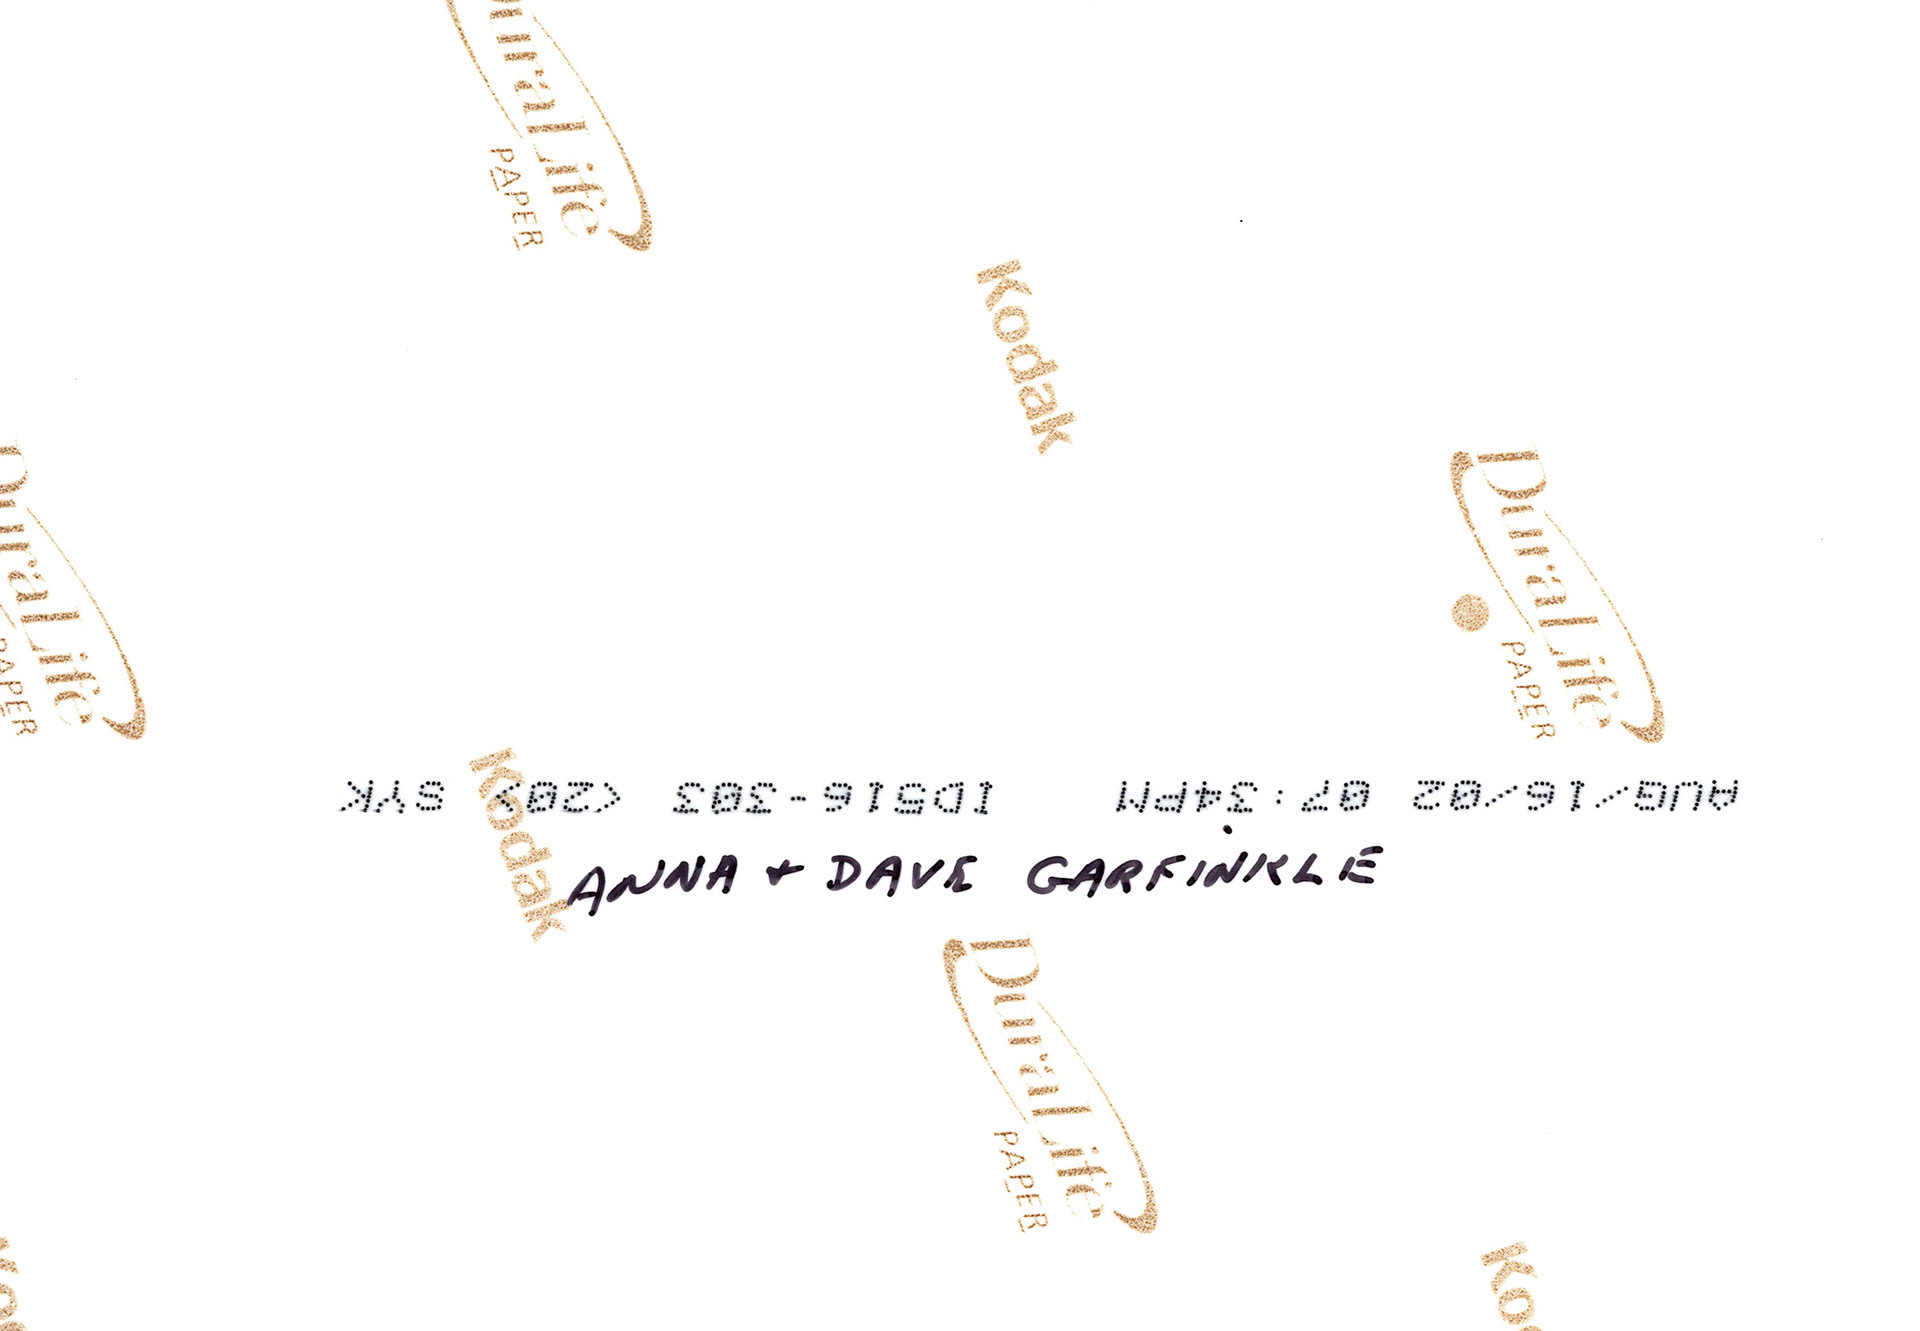 DuraLife
PAPER
Kodak
DuraLife
PAPER
DuraLife
PAPER
Kodak
AUG/16/02 07:34PM ID516-303 <20> SYK
ANNA + DAVE GARFINKLE
DuraLife
PAPER
Kod
Ko